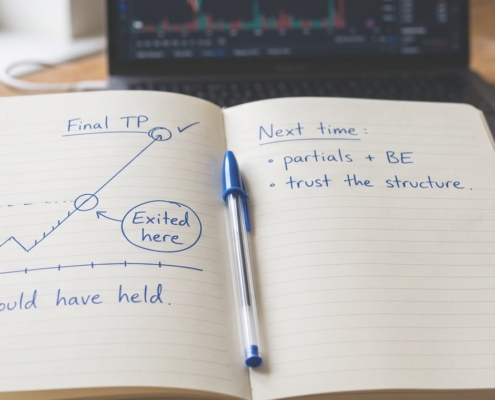 Final TP ✓
Exited
here
ould have held.
Next time:
• partials + BE
• trust the structure.